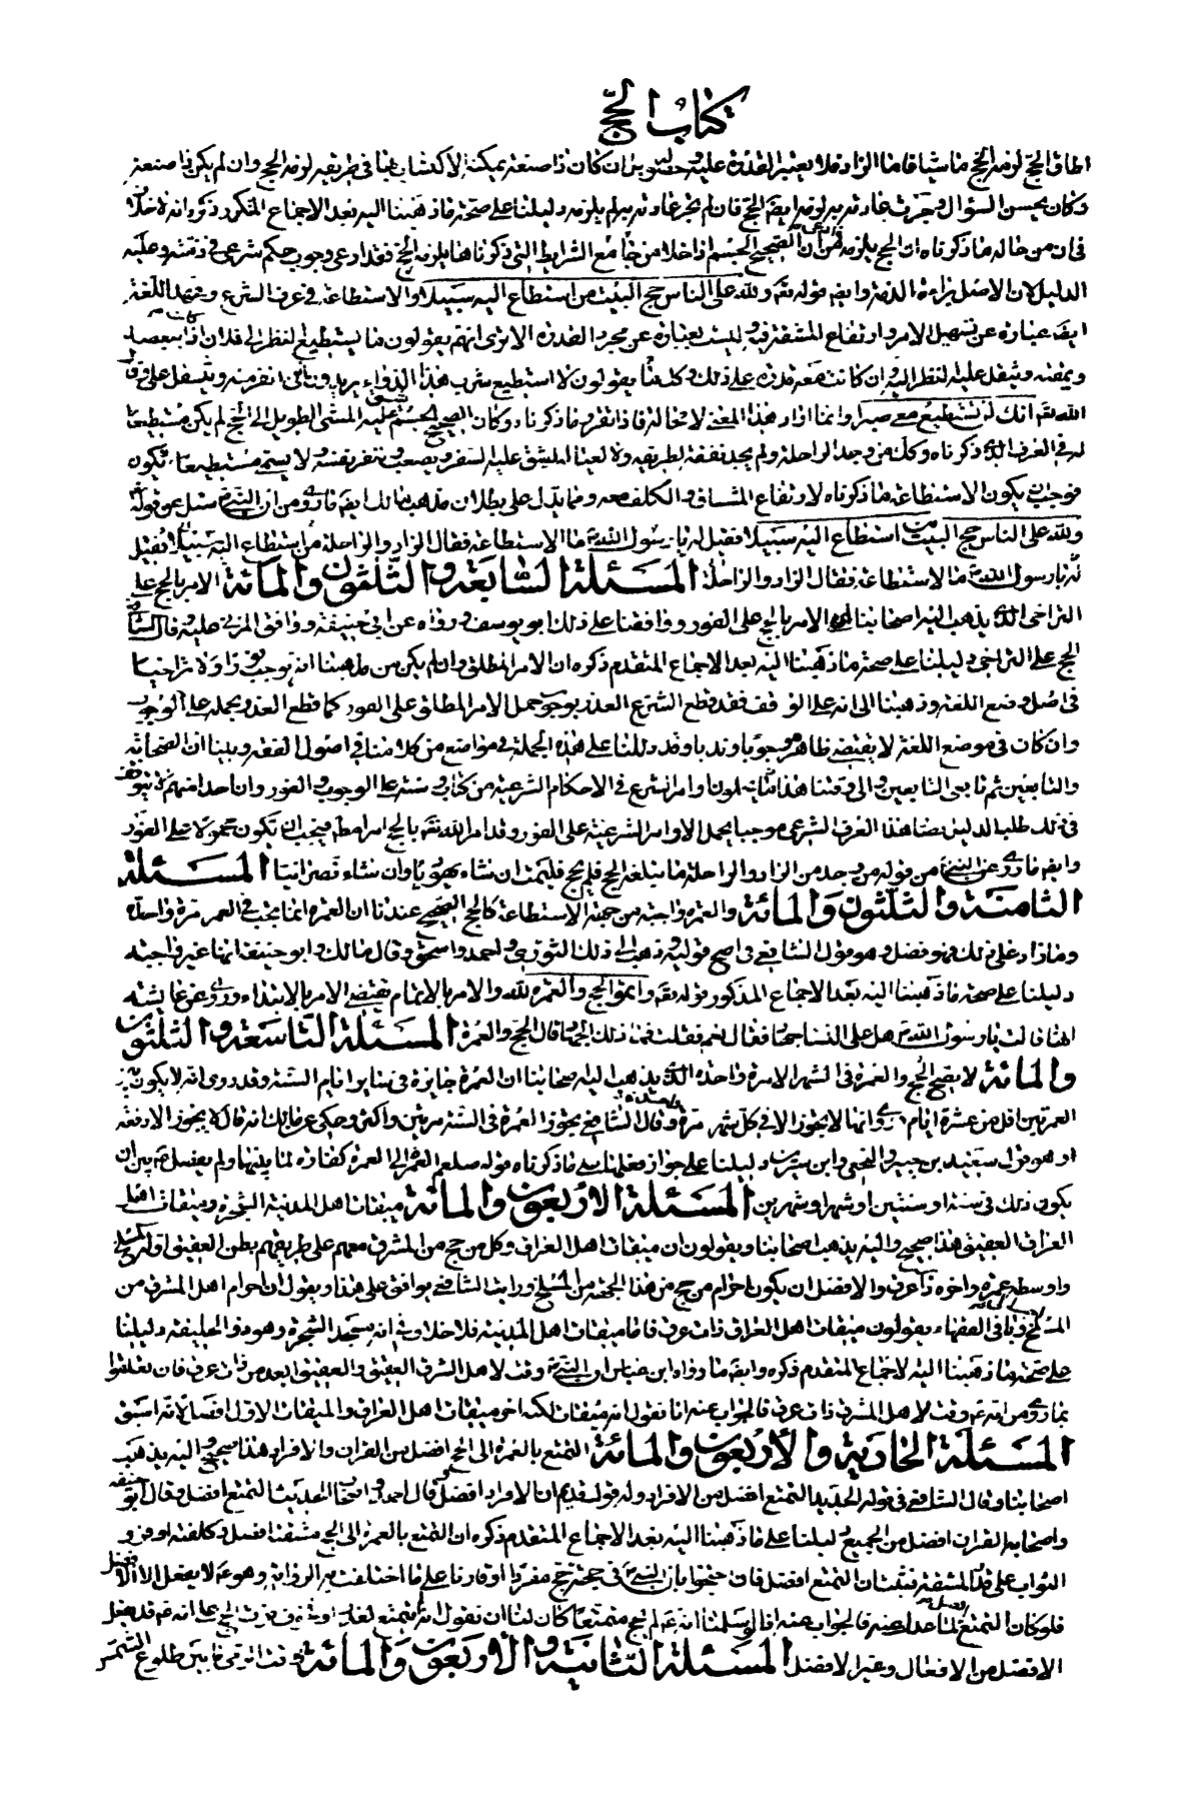 كتاب الحج
اطاق الحج لزمه الحج ماشيا فاما الزاد فلا يعتبر القدرة عليه وحصوله بل ان كان ذا صنعة يمكنه الاكتساب بها في طريقه لزمه الحج وان لم يكن ذا صنعة
وكان يحسن السؤال وجرت عادته به لزمه ايضا الحج فان لم تجر عادته به لم يلزمه دليلنا على صحة ما ذهبنا اليه بعد الاجماع المتكرر ذكره انه لا خلاف
في ان من حاله ما ذكرناه ان الحج يلزمه فمن ادعى ان الصحيح الجسم اذا خلا من جامع الشرايط التي ذكرناها يلزمه الحج فقد ادعى وجوب حكم شرعي في ذمته وعليه
الدليل لان الاصل براءة الذمة وايضا قوله تعـ ولله على الناس حج البيت من استطاع اليه سبيلا والاستطاعة في عرف الشرع وعهد اللغة
ايضا عبارة عن تسهيل الامر وارتفاع المشقة فيه وليست بعبارة عن مجرد القدرة الا ترى انهم يقولون ما يستطيع النظر الى فلان اذا كان يبغضه
ويمقته ويثقل عليه النظر اليه وان كانت معه قدرة على ذلك وكذلك يقولون لا استطيع شرب هذا الدواء يريدون انني انفر منه ويثقل على وقال
الله تعـ انك لن تستطيع معي صبرا وانما اراد هذا المعنى لا محالة فاذا تقرر ما ذكرناه وكان الصحيح الجسم يشق عليه المشي الطويل الى الحج لم يكن مستطيعا
له في العرف الذي ذكرناه وكذلك من وجد الراحلة ولم يجد نفقة لطريقه ولا لعياله يشق عليه السفر ويصعب وتنفر نفسه ولا يسمى مستطيعا
فوجب ان يكون الاستطاعة ما ذكرناه لارتفاع المشاق والكلف معه ومما يدل على بطلان مذهب مالك ايضا ما روى من ان النبي ص سئل عن قوله
ولله على الناس حج البيت من استطاع اليه سبيلا فقيل له يا رسول الله ص ما الاستطاعة فقال الزاد والراحلة من استطاع اليه سبيلا فقيل
له يا رسول الله ص ما الاستطاعة فقال الزاد والراحلة المسئلة السابعة والثلثون والمائة الامر بالحج على
التراخي الذي يذهب اليه اصحابنا ان الامر بالحج على الفور ووافقنا على ذلك ابو يوسف ورواه عن ابي حنيفة ووافق المزني عليه وقال الشافعي
الحج على التراخي دليلنا على صحة ما ذهبنا اليه بعد الاجماع المتقدم ذكره ان الامر المطلق وان لم يكن من مذهبنا انه يوجب فورا ولا تراخيا
في اصل وضع اللغة وذهبنا الى انه على الوقف فقد قطع الشرع العذر بوجوب حمل الامر المطلق على الفور كما قطع العذر بحمله على الوجوب
وان كان في موضع اللغة لا يقتضي ظاهره وجوبا وندبا وقد دللنا على هذه الجملة في مواضع من كلامنا في اصول الفقه وبينا ان الصحابة
والتابعين ثم تابعى التابعين والى وقتنا هذا يحملون اوامر الشرع في الاحكام الشرعية من كتاب وسنة على الوجوب والفور وان احدا منهم لا يتوقف
في ذلك طلبا لدليل فصار هذا العرف الشرعي موجبا بحمل الاوامر الشرعية على الفور وقد امر الله تعـ بالحج امرا مطلقا فيجب ان يكون محمولا على الفور
وايضا ما روى عن النبي ص من قوله من وجد من الزاد والراحلة ما يبلغه الحج فلم يحج فليمت ان شاء يهوديا وان شاء نصرانيا المسئلة
الثامنة والثلثون والمائة والعمرة واجبة من جهة الاستطاعة كالحج الصحيح عندنا ان العمرة انما تجب في العمر مرة واحدة
وما زاد على ذلك فهو فضل وهو قول الشافعي في اصح قوليه وذهب الى ذلك الثوري واحمد واسحق وقال مالك وابو حنيفة انها غير واجبة
دليلنا على صحة ما ذهبنا اليه بعد الاجماع المذكور قوله تعـ واتموا الحج والعمرة لله والامر بالاتمام يقتضي الامر بالابتداء وروى عن عايشة
انها قالت يا رسول الله ص هل على النساء جهاد فقال نعم فقلت فما ذلك الجهاد قال الحج والعمرة المسئلة التاسعة والثلثون
والمائة لا يصح الحج والعمرة في الشهر الا مرة واحدة الذي يذهب اليه اصحابنا ان العمرة جايزة في ساير ايام السنة وقد روى انه لا يكون بين
العمرتين اقل من عشرة ايام وروى انها لا يجوز الا في كل شهر مرة واحدة وقال الشافعي يجوز العمرة في السنة مرتين واكثر وحكى عن مالك انه قال لا يجوز الا دفعة
او هو قول سعيد بن جبير والنخعي وابن سيرين دليلنا على جواز فعلها على ما ذكرناه قوله صلعم العمرة الى العمرة كفارة لما بينهما ولم يفصل ع بين ان
يكون ذلك في سنة او سنتين او شهر او شهرين المسئلة الاربعون والمائة ميقات اهل المدينة الشجرة وميقات اهل
العراق العقيق هذا صحيح واليه يذهب اصحابنا ويقولون ان ميقات اهل العراق وكل من حج من المشرق معهم على طريقهم بطن العقيق اوله المسلخ
واوسطه غمرة واخره ذات عرق والافضل ان يكون احرام من حج من هذا الجهة من المسلخ ورايت الشافعي يوافق على هذا ويقول ان احرام اهل المشرق من
المسلخ وباقي الفقهاء يقولون ميقات اهل العراق ذات عرق فاما ميقات اهل المدينة فلا خلاف في انه مسجد الشجرة وهو ذو الحليفة دليلنا
على صحة ما ذهبنا اليه الاجماع المتقدم ذكره وايضا ما رواه ابن عباس ان النبي ص وقت لاهل الشرق العقيق والعقيق ابعد من ذات عرق فان تعلقوا
بما روى من انه ع وقت لاهل المشرق ذات عرق فالجواب عنه انا نقول انه ميقات لكنه اخر ميقات اهل العراق والميقات الاول افضل لانه اسبق
المسئلة الحادية والأربعون والمائة التمتع بالعمرة الى الحج افضل من القران والافراد هذا صحيح واليه يذهب
اصحابنا وقال الشافعي في قوله الجديد التمتع افضل من الافراد وله قول قديم ان الافراد افضل وقال احمد واصحاب الحديث التمتع افضل وقال ابو حنيفة
واصحابه القران افضل من الجميع دليلنا على ما ذهبنا اليه بعد الاجماع المتقدم ذكره ان التمتع بالعمرة الى الحج مشقته افضل وكلفته اوفر و
الثواب على قدر المشقة فثبت ان التمتع افضل فان احتجوا بان النبي ص في حجته حج مفردا او قارنا على ما اختلفت به الرواية وهو ع لا يفعل الا الافضل
فلو كان التمتع افضل لما عدل عنه فالجواب عنه انا لو سلمنا انه ع لم يحج متمتعا كان لنا ان نقول انه لم يتمتع لعذر او بما انه ع قد يفعل
الافضل من الافعال وغير الافضل المسئلة الثانية والأربعون والمائة وقت الرمى ما بين طلوع الشمس